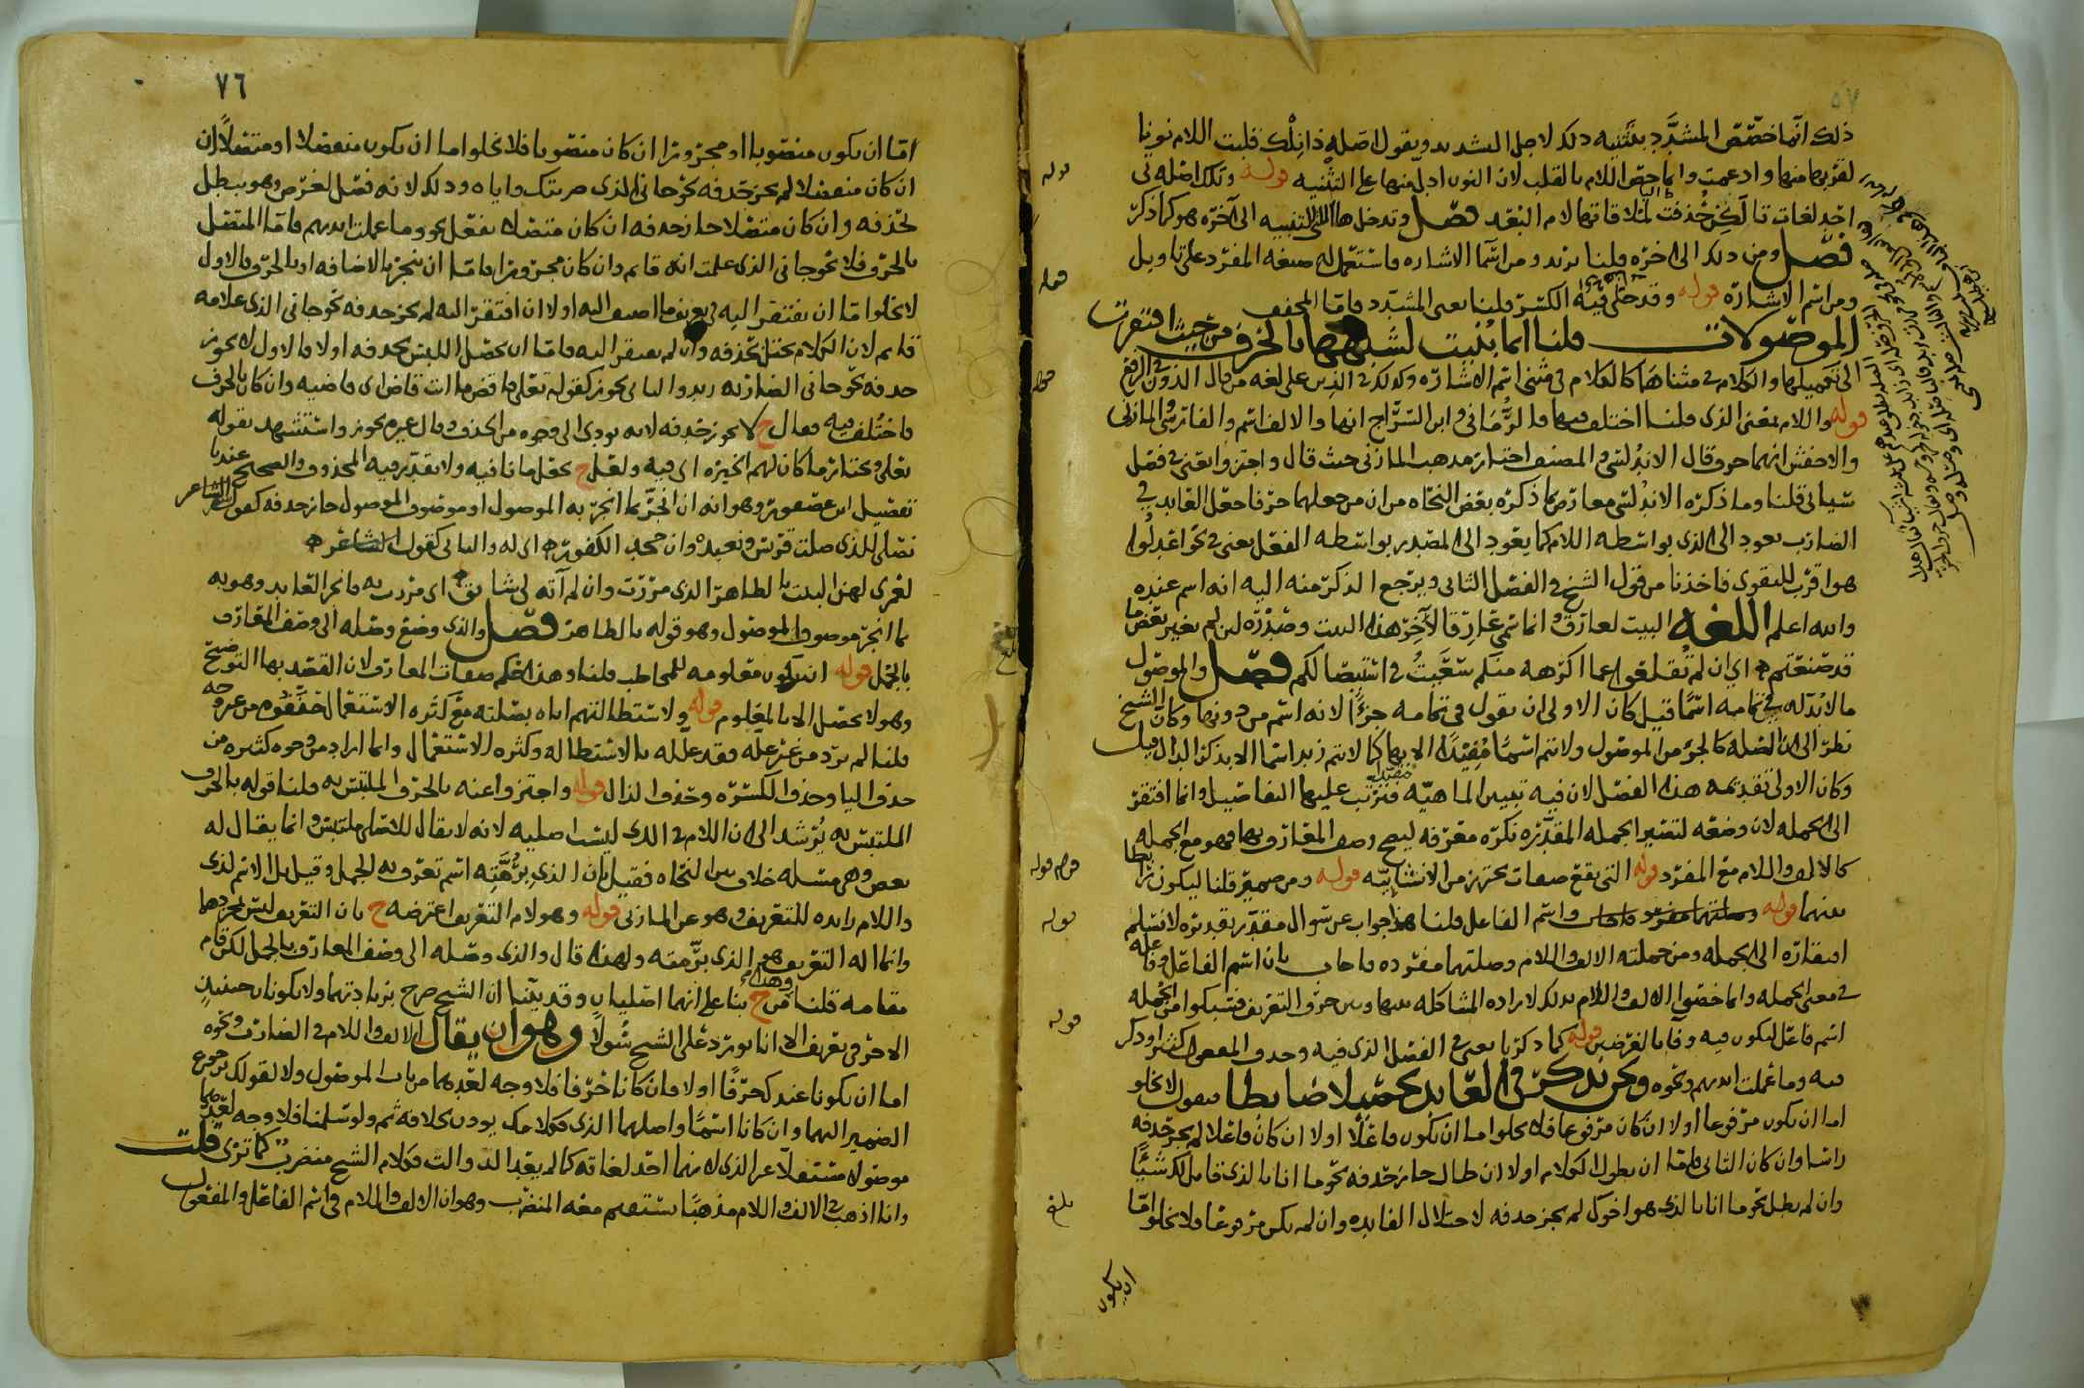 ذلك انما خصص المشدد بتثنيه ذلك لاجل التشديد ويقول اصله ذانلك قلبت اللام نونا
لقربها منها وادغمت وانما حصل اللام بالقلب لان النون ادل منها على التثنيه قوله وتلك اصله تي
احد لغات تا لكن حذفت لملاقاتها لام البعد فصل وتدخل ها التي للتنبيه الى آخره هو كما ذكر
فصل ومن ذلك الى اخره قلنا يريد ومن اسما الاشاره فاستعمل له صيغه المفرد على تاويل
ومن اسم الاشاره قوله وقد حكي فيه الكسر قلنا يعني المشدد فاما المخفف
الموصولات قلنا انما بنيت لشبهها بالحرف من حيث افتقرت
الى تتميلها والكلام في مثناها كالكلام في مثنى اسم الاشاره وكذلك في الذين على لغه من قال الذون في الرفع
قوله واللام بمعنى الذي قلنا اختلف فيها فالرماني وابن السراج انها والالف اسم والفارسي والمازني
والاخفش انهما حرف قال الاندلسي والمصنف اختار مذهب المازني حيث قال واجتزوا يعني في فصل
سياتي قلنا وما ذكره الاندلسي معارض بما ذكره بعض النحاه من ان من جعلهما حرفا جعل العايد في
الضارب يعود الى الذي بواسطه اللام كما يعود الى المصدر بواسطه الفعل يعني في نحو اعدلوا
هو اقرب للتقوى فاخذنا من قول الشيخ في الفصل الثاني ويرجع الذكر منه اليه انه اسم عنده
والله اعلم اللغه البيت لعارق وانما سمي عارقا لآخر هذا البيت وصدره لئن لم تغير بعض ما
قد صنعتم اي ان لم تقلعوا عما اكرهه منكم سعيت في استيصالكم فصل والموصول
ما لا بد له في تمامه اسما قيل كان الاولى ان يقول في تمامه جزءا لانه اسم من دونها وكان الشيخ
نظر الى ان الصله كالجزء من الموصول ولا تتم اسما مفيدا الا بها كما لا يتم زيد اسما الا بذكر الدال قيل
وكان الاولى تقديمه هذا الفصل لان فيه تبيين الماهيه فترتب عليها التفاصيل وانما افتقر
الى الجمله لان وضعه لتصير الجمله المقدره نكره معرفه ليصح وصف المعارف بها فهو مع الجمله
كالالف واللام مع المفرد قوله التي يقع صفات يحترز من الانشائيه قوله ومن ضمير قلنا ليكون رابطا
بينهما قوله واسم الفاعل قلنا هذا جواب عن سوال مقدر تقديره لا نسلم
افتقاره الى الجمله ومن جملته الالف واللام وصلتهما مفرده فاجاب بان اسم الفاعل وفاعله
في معنى الجمله وانما خصوا الالف واللام بذلك لاراده المشاكله بينها وبين حرف التعريف فسبكوا من الجمله
اسم فاعل ليكون فيه وفا بالغرضين قوله كما ذكرنا يعني في الفصل الذي فيه وحذف المفعول كثير اذ ذكر
فيه وما عملت ايديهم ونحوه ونحن نذكر في العايد تحصيلا ضابطا فنقول لا يخلو
اما ان يكون مرفوعا او لا ان كان مرفوعا فلا يخلو اما ان يكون فاعلا او لا ان كان فاعلا لم يجز حذفه
راسا وان كان الثاني فاما ان يطول الكلام او لا ان طال جاز حذفه نحو ما انا بالذي قايل لك شيا
وان لم يطل نحو ما انا بالذي هو اخوك لم يجز حذفه لاختلال الفايده وان لم يكن مرفوعا فلا يخلو اما
ان يكون
قوله
قوله
قوله
قوله
قوله
بلغ
٧٦
اما ان يكون منصوبا او مجرورا ان كان منصوبا فلا يخلو اما ان يكون منفصلا او متصلا ان
ان كان منفصلا لم يجز حذفه نحو جاني الذي ضربتك واياه وذلك لانه فصل لغرض وهو يبطل
بحذفه وان كان متصلا جاز حذفه ان كان متصلا بفعل نحو وما عملت ايديهم فاما المتصل
بالحرف فلا نحو جاني الذي علمت انه قايم وان كان مجرورا فاما ان ينجر بالاضافه او بالحرف فالاول
لا يخلو اما ان يفتقر اليه في تعريف ما اضيف اليه او لا ان افتقر اليه لم يجز حذفه نحو جاني الذي غلامه
قايم لان الكلام يختل بحذفه وان لم يفتقر اليه فاما ان يحصل اللبس بحذفه او لا فالاول لا يجوز
حذفه نحو جاني الضاربه زيد والثاني يجوز كقوله تعلى فاقض ما انت قاض اي قاضيه وان كان بالحرف
فاختلف فيه فقال ح لا يجوز حذفه لانه يودي الى وجوه من الحذف وقال غيره يجوز واستشهد بقوله
تعلى ويختار ما كان لهم الخيره اي فيه ولعل ح يجعل ما نافيه ولا تقدير فيه لمحذوف والصحيح عندنا
تفصيل ابن عصفور وهو انه ان انجر بما انجر به الموصول او موصوف الموصول جاز حذفه كقول الشاعر
نصلي للذي صلت قريش ونعبده وان جحد الكفور اي له والثاني كقول الشاعر
لعمري لهن البيت بالظاهر الذي مررت وان لم آته لي شايق اي مررت به فانجر العايد وهو به
بما انجر موصوف الموصول وهو قوله بالظاهر فصل والذي وضع وصله الى وصف المعارف
بالجمل قوله ان تكون معلومه للمخاطب قلنا وهذا حكم صفات المعارف لان القصد بها التوضيح
وهو لا يحصل الا بالمعلوم قوله ولاستطالتهم اياه بصلته مع كثره الاستعمال خففوه من غير وجه
قلنا لم يرد من غير عله فقد علله بالاستطاله وكثره الاستعمال وانما اراد من وجوه كثيره من
حذف اليا وحذف الكسره وحذف الذال قوله واجتزوا عنه بالحرف الملتبس به قلنا قوله بالحرف
الملتبس به يرشد الى ان اللام في الذي ليست اصليه لانه لا يقال للاصلي ملتبس وانما يقال له
بعض وهي مسله خلاف بين النحاه فقيل بان الذي برمته اسم تعرف به الجمل وقيل بل الاسم لذي
واللام زايده للتعريف وهو عن المازني قوله وهو لام التعريف اعترضه ح بان التعريف ليس لمجردها
وانما اله التعريف هو الذي برمته ولهذا قال والذي وصله الى وصف المعارف بالجمل لكن قام
مقامه قلنا وهذا من ح بنا على انهما اصليان وقد بينا ان الشيخ صرح بزيادتهما ولا يكونان حينئذ
الا حرفي تعريف الا انا نورد على الشيخ سولا وهو ان يقال الالف واللام في الضارب ونحوه
اما ان يكونا عندك حرفا او لا فان كانا حرفا فلا وجه لعدهما من باب الموصول ولا لقولك برجوع
الضمير اليهما وان كانا اسما واصلهما الذي فكلامك يوذن بخلافه ثم ولو سلمنا فلا وجه لعدهما
موصولا مستقلا عن الذي لانهما احد لغاته كما لم يعد الذ والت فكلام الشيخ مضطرب كما ترى قلت
وانا اذهب في الالف واللام مذهبا يستقيم معه المضطرب وهو ان الالف واللام في اسم الفاعل والمفعول